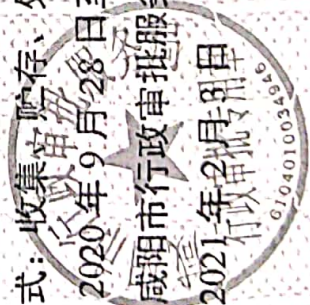 式：收集、贮存、
2020年9月28日
咸阳市行政审批服
2021年2月8日
行政审批专用章
6104010034946